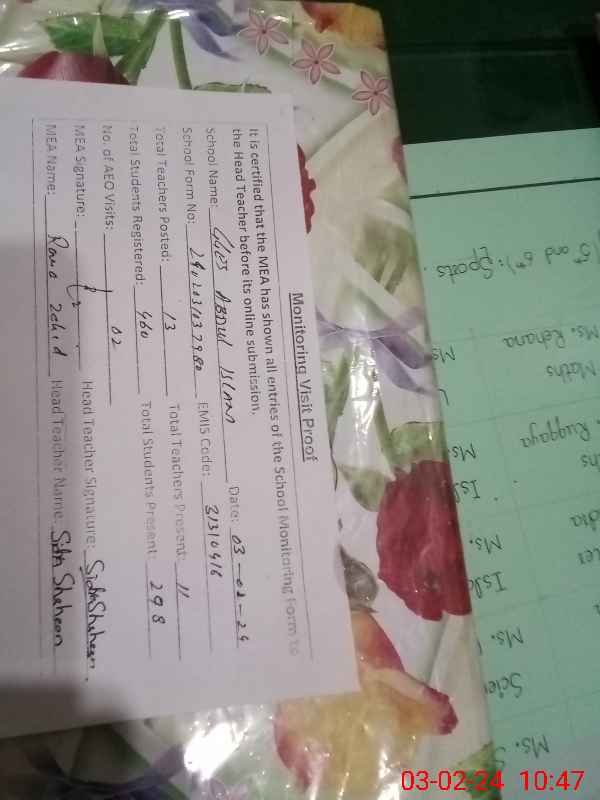 Monitoring Visit Proof
It is certified that the MEA has shown all entries of the School Monitoring Form to
the Head Teacher before its online submission.
School Name: GGES ABDUL ISLAM Date: 03-02-24
School Form No: EMIS Code: 31310416
Total Teachers Posted: 13 Total Teachers Present: 11
Total Students Registered: 460 Total Students Present: 298
No. of AEO Visits: 02
MEA Signature: Head Teacher Signature: Sidra Shaheen.
MEA Name: Rana Zahid Head Teacher Name: Sidra Shaheen
(5th and 6th): Sports.
Ms. Rehana Ms
Maths
Ruqqaya Ms.
Isl
Ms.
Isl
Ms.
Scie
Ms. S
03-02-24 10:47